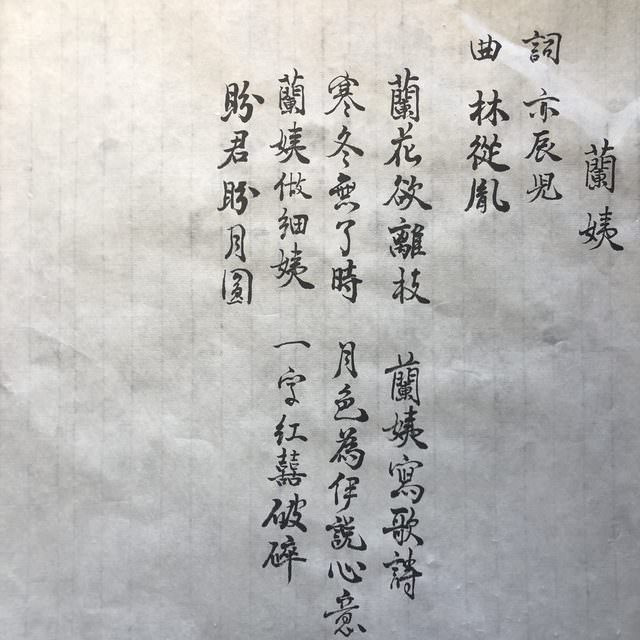 蘭姨
詞 亦辰児
曲 林從胤
蘭花欲離枝 蘭姨寫歌詩
寒冬無了時 月色為伊說心意
蘭姨做細姨 一字紅囍破碎
盼君盼月圓